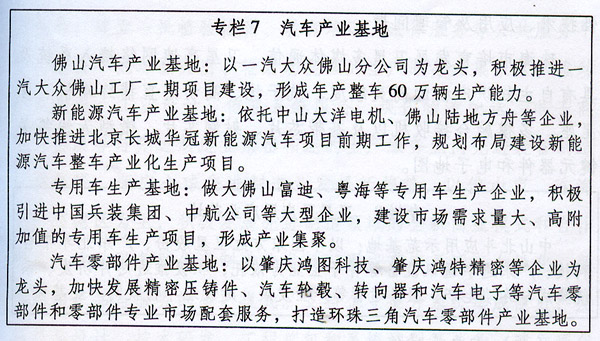 专栏7 汽车产业基地
佛山汽车产业基地：以一汽大众佛山分公司为龙头，积极推进一
汽大众佛山工厂二期项目建设，形成年产整车60万辆生产能力。
新能源汽车产业基地：依托中山大洋电机、佛山陆地方舟等企业，
加快推进北京长城华冠新能源汽车项目前期工作，规划布局建设新能
源汽车整车产业化生产项目。
专用车生产基地：做大佛山富迪、粤海等专用车生产企业，积极
引进中国兵装集团、中航公司等大型企业，建设市场需求量大、高附
加值的专用车生产项目，形成产业集聚。
汽车零部件产业基地：以肇庆鸿图科技、肇庆鸿特精密等企业为
龙头，加快发展精密压铸件、汽车轮毂、转向器和汽车电子等汽车零
部件和零部件专业市场配套服务，打造环珠三角汽车零部件产业基地。